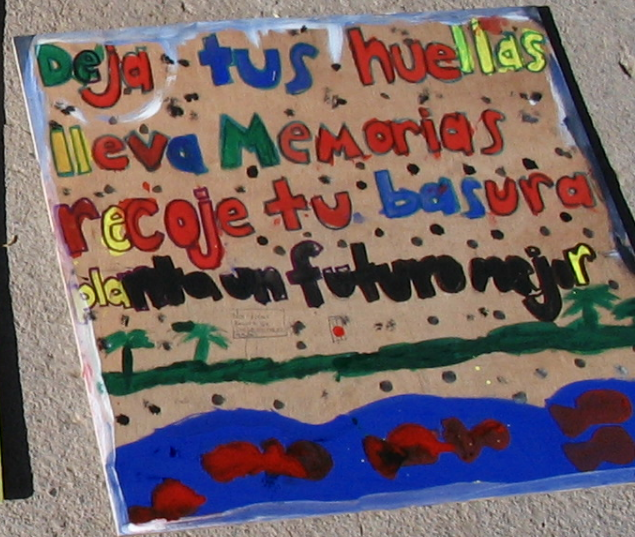 Deja tus huellas
lleva Memorias
recoje tu basura
planta un futuro mejor